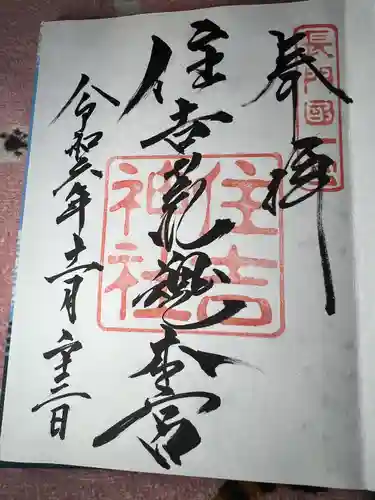 奉拝
長門國一
住吉荒魂本宮
住吉
神社
令和六年十一月二十三日